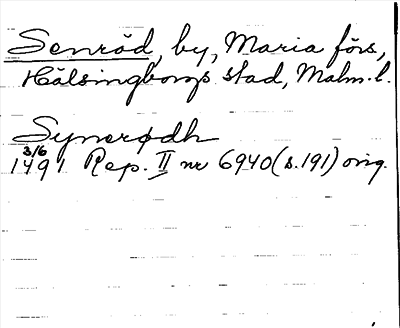 Senröd, by, Maria förs,
Hälsingborgs stad, Malm. l.
Synerødh
3/6
1491 Rep. II nr 6940 (s. 191) orig.